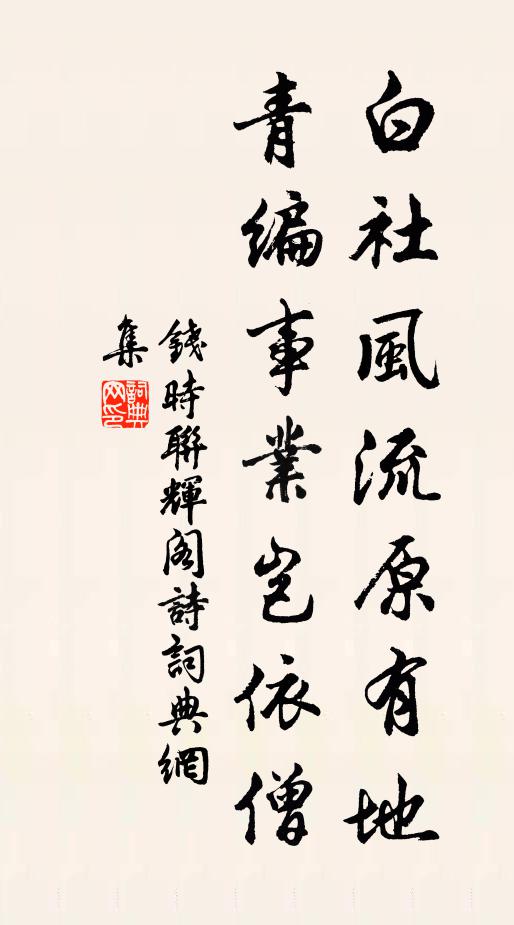 白社風流原有地
青編事業豈依僧
錢時聯輝阁詩詞典網
集
詞典
网印